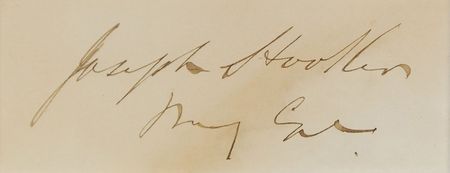 Joseph Hooker
Maj Genl.